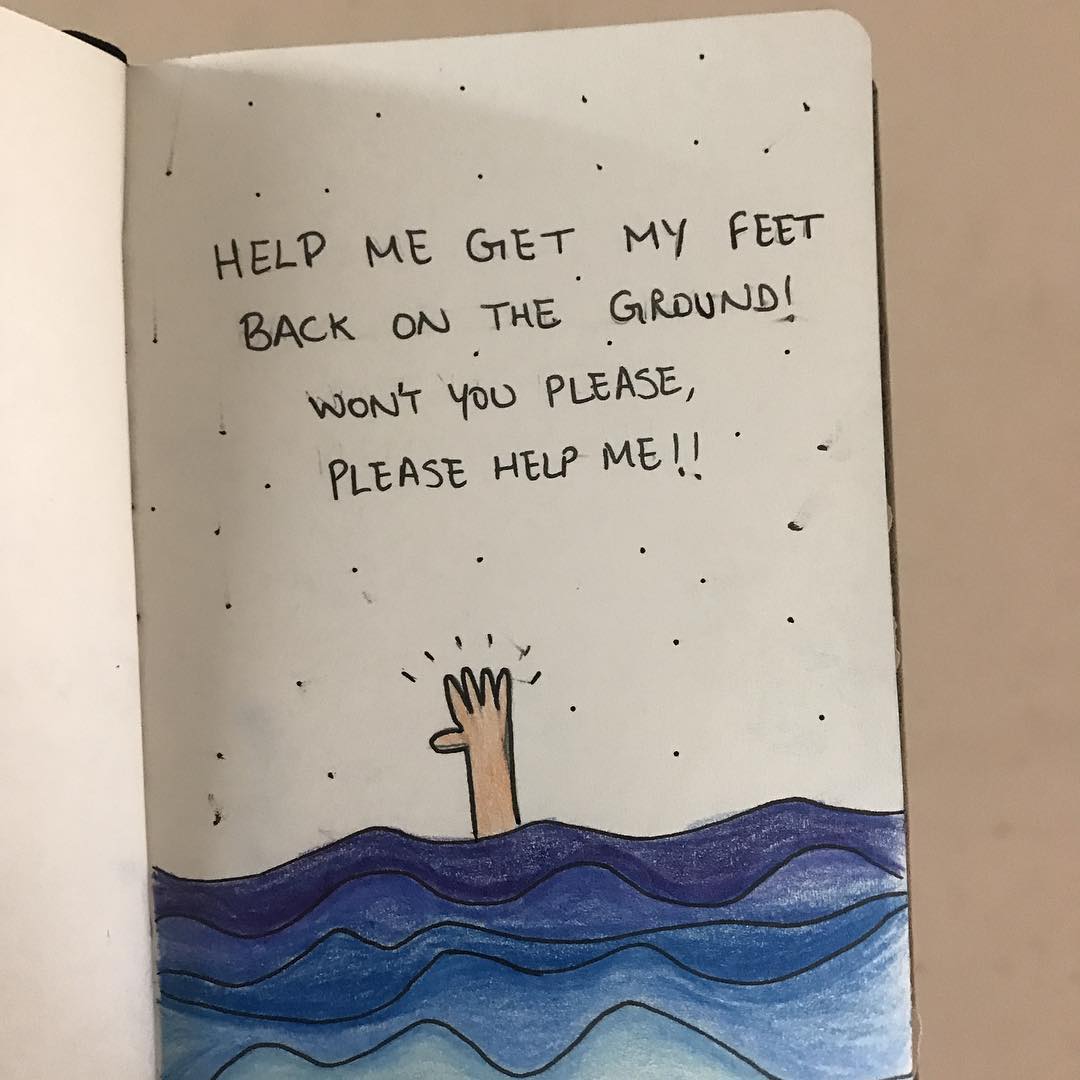 HELP ME GET MY FEET
BACK ON THE GROUND!
WON'T YOU PLEASE,
PLEASE HELP ME!!